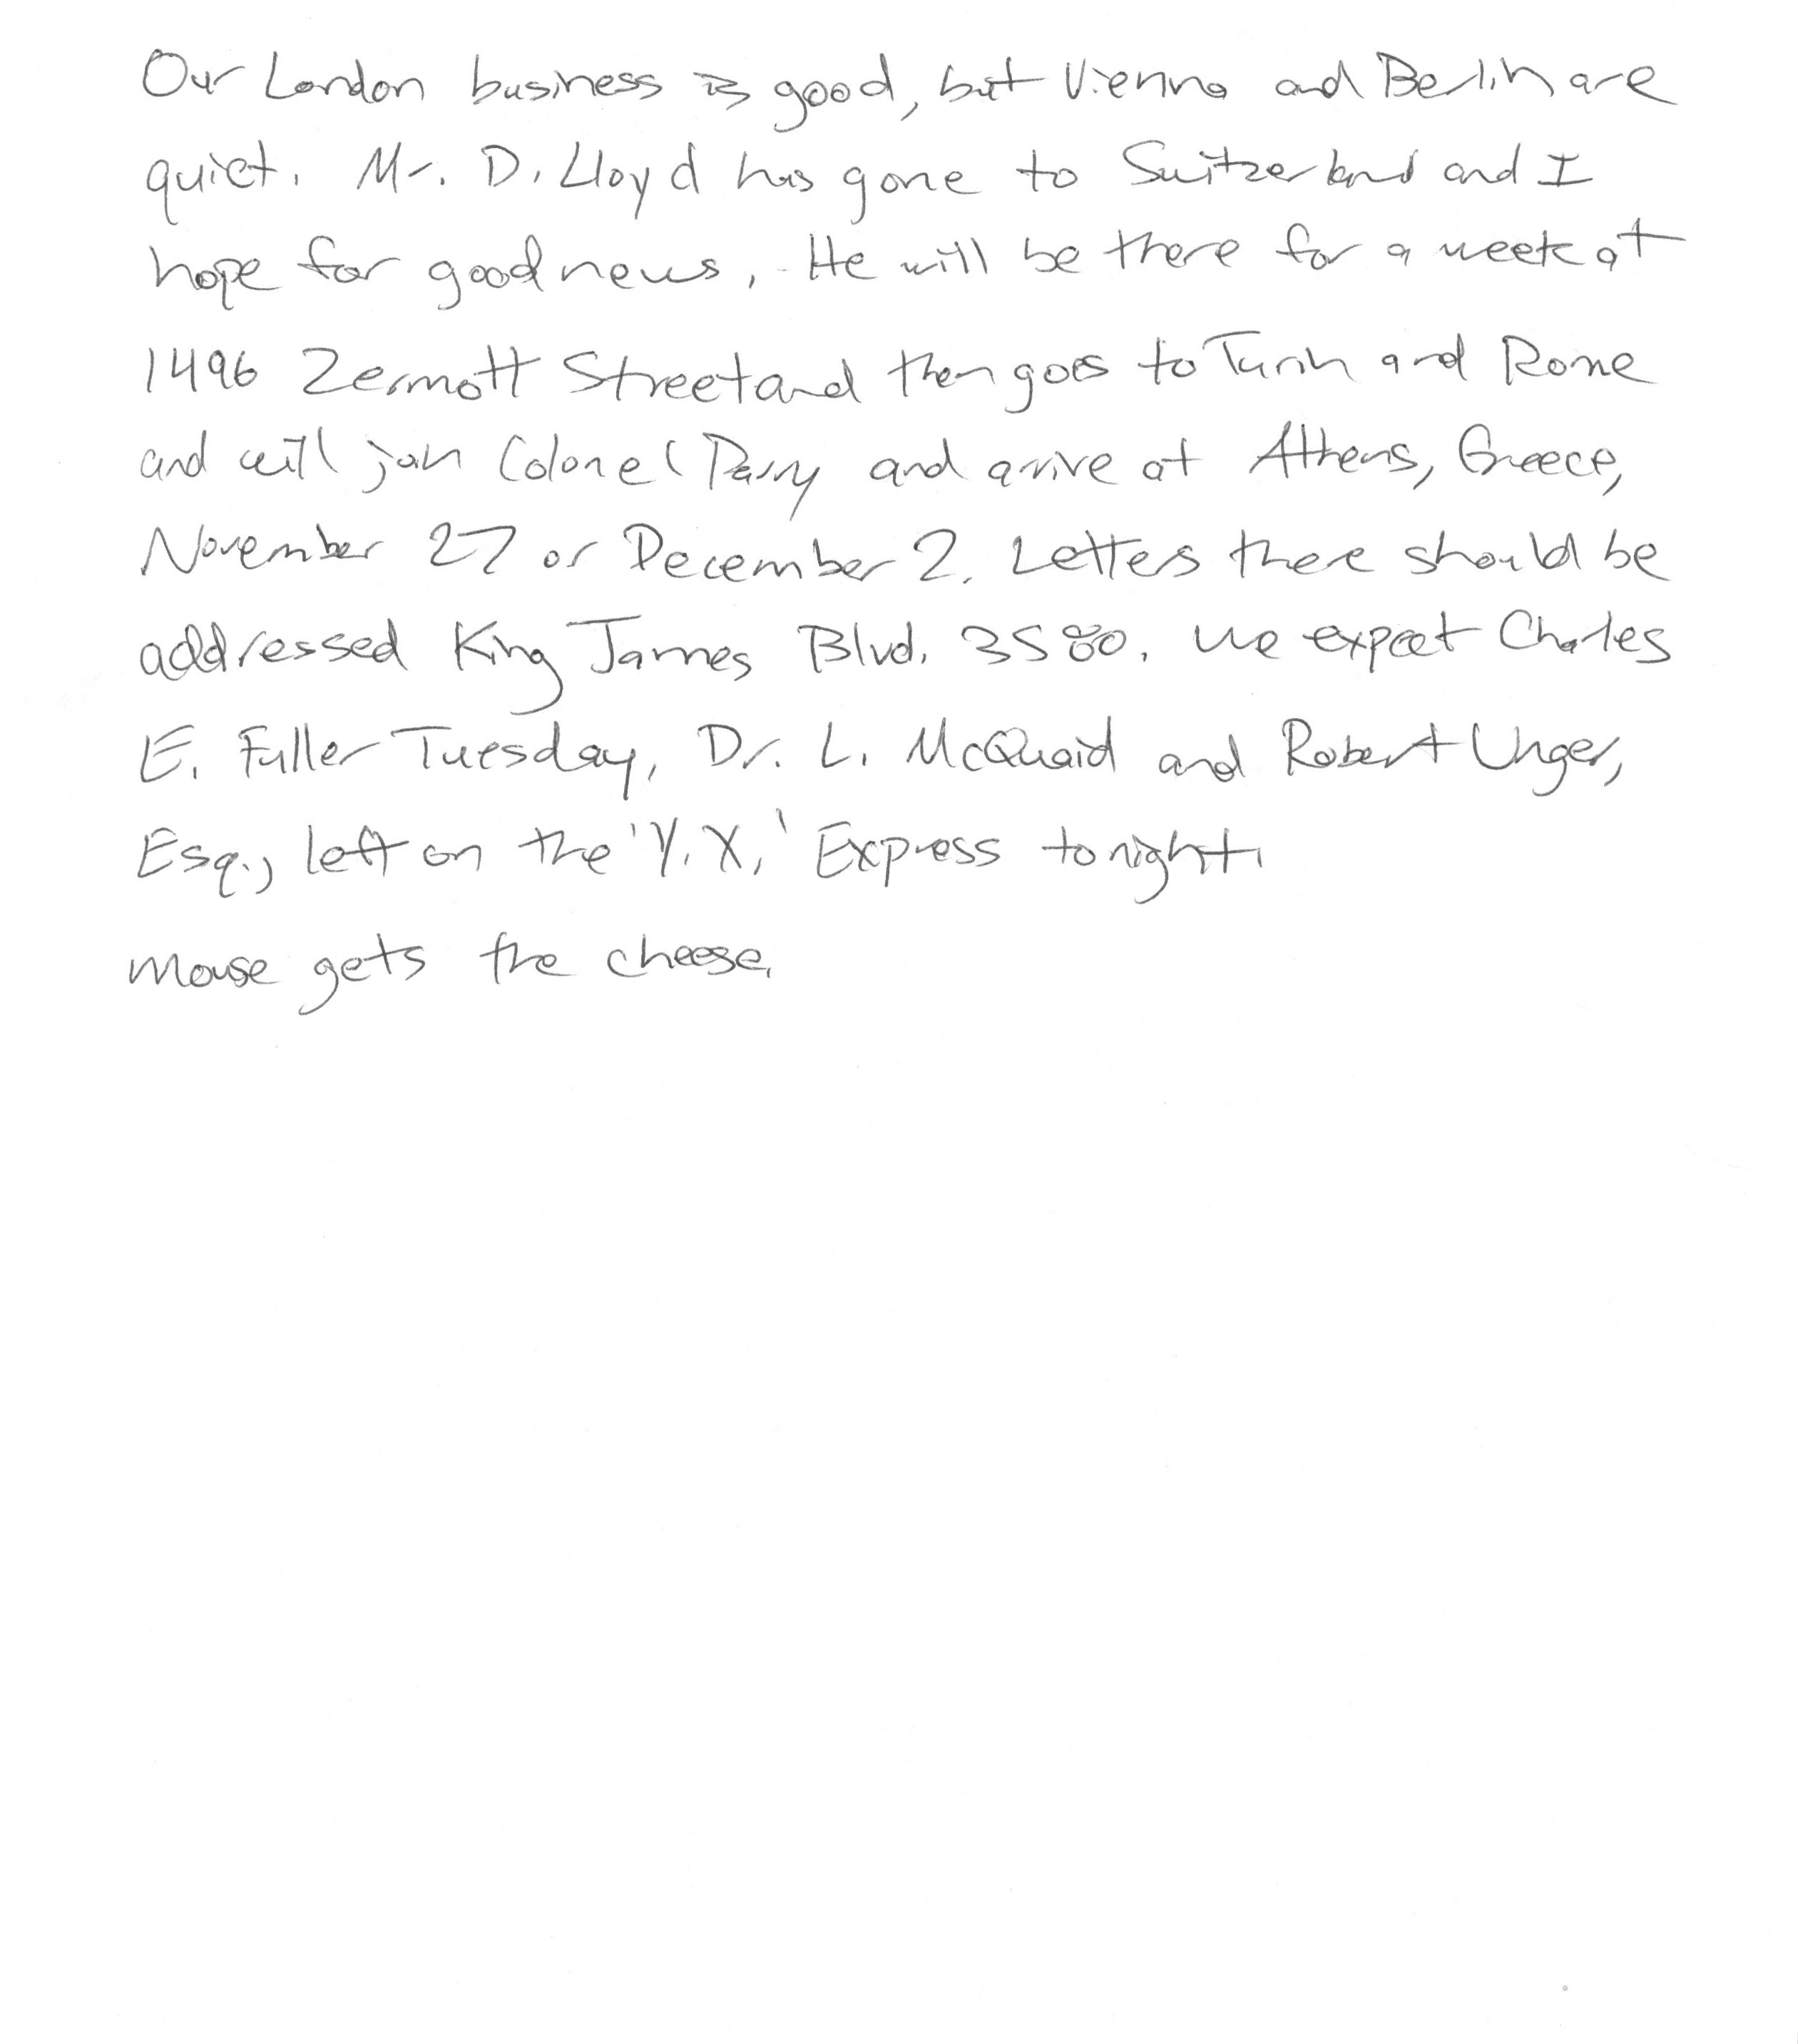 Our London business is good, but Vienna and Berlin are
quiet. Mr. D. Lloyd has gone to Switzerland and I
hope for good news. He will be there for a week at
1496 Zermott Street and then goes to Turin and Rome
and will join Colonel Parry and arrive at Athens, Greece,
November 27 or December 2. Letters there should be
addressed King James Blvd. 3580. We expect Charles
E. Fuller Tuesday, Dr. L. McQuaid and Robert Unger,
Esq., left on the 'Y.X.' Express tonight.
mouse gets the cheese.